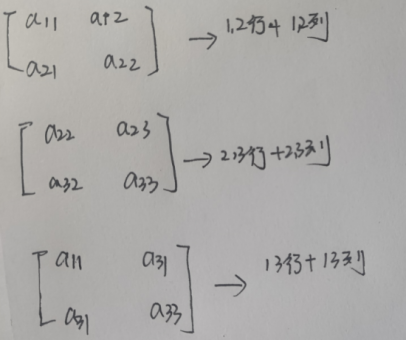 a11 a12
a21 a22
→ 1,2行+1,2列
a22 a23
a32 a33
→ 2,3行+2,3列
a11 a31
a31 a33
→ 13行+13列